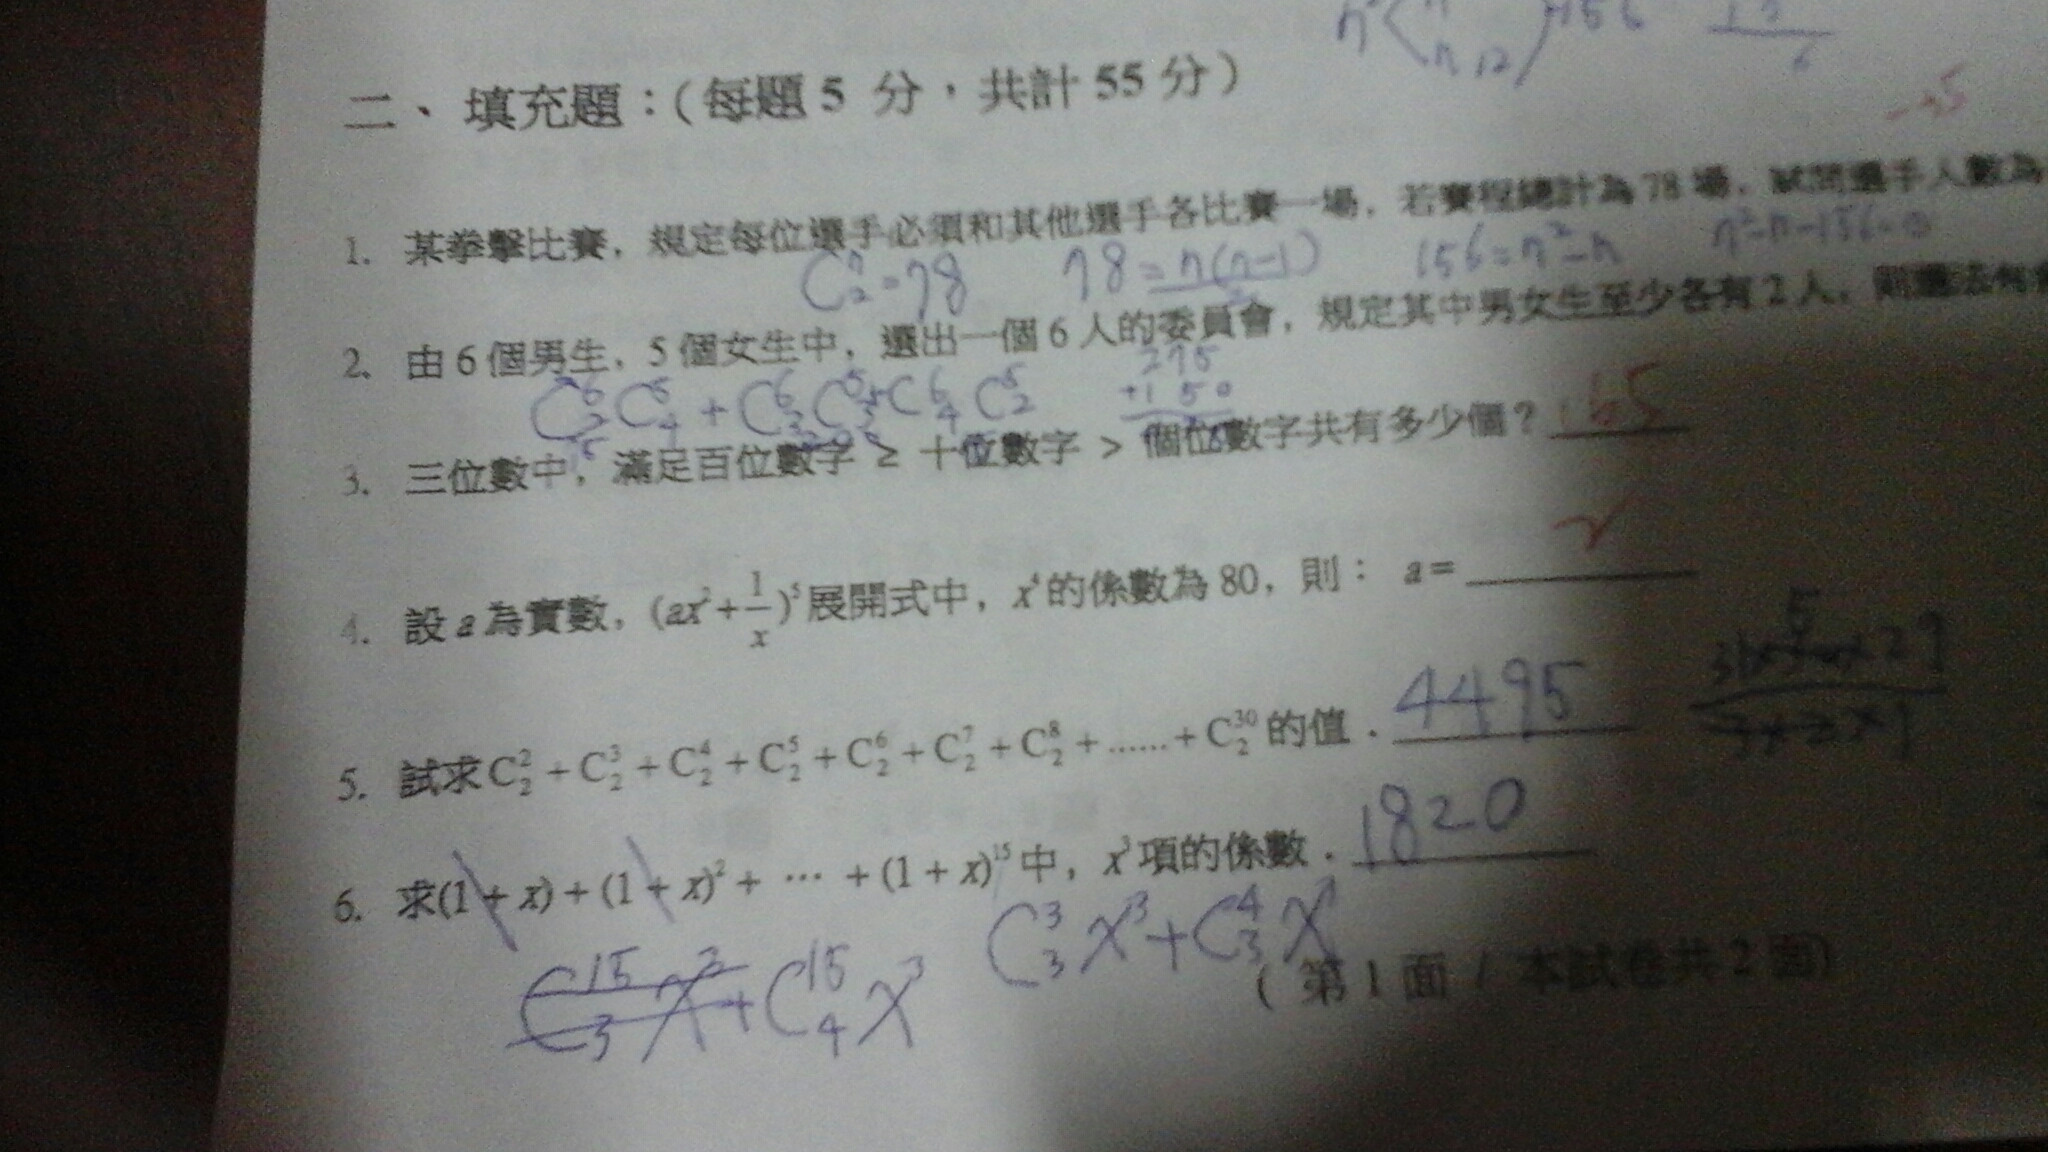 二、填充題：(每題 5 分，共計 55 分)
-35
1. 某拳擊比賽，規定每位選手必須和其他選手各比賽一場，若賽程總計為 78 場，試問選手人數為
C₂ⁿ=78 78=n(n-1)/2 156=n²-n n²-n-156=0
2. 由 6 個男生，5 個女生中，選出一個 6 人的委員會，規定其中男女生至少各有 2 人，則選法有
C₂⁶C₄⁵+C₃⁶C₃⁵+C₄⁶C₂⁵ 275
+150
3. 三位數中，滿足百位數字 ≥ 十位數字 > 個位數字共有多少個？165
4. 設 a 為實數，(ax²+1/x)⁵展開式中，x⁴的係數為 80，則： a= 2
5. 試求C₂²+C₂³+C₂⁴+C₂⁵+C₂⁶+C₂⁷+C₂⁸+......+C₂³⁰的值．4495
3×2×1
6. 求(1+x)+(1+x)²+ ⋯ +(1+x)¹⁵中，x³項的係數．1820
C₃³x³+C₃⁴x³
C₃¹⁵x³+C₄¹⁵x³
( 第 1 面 / 本試卷共 2 面)